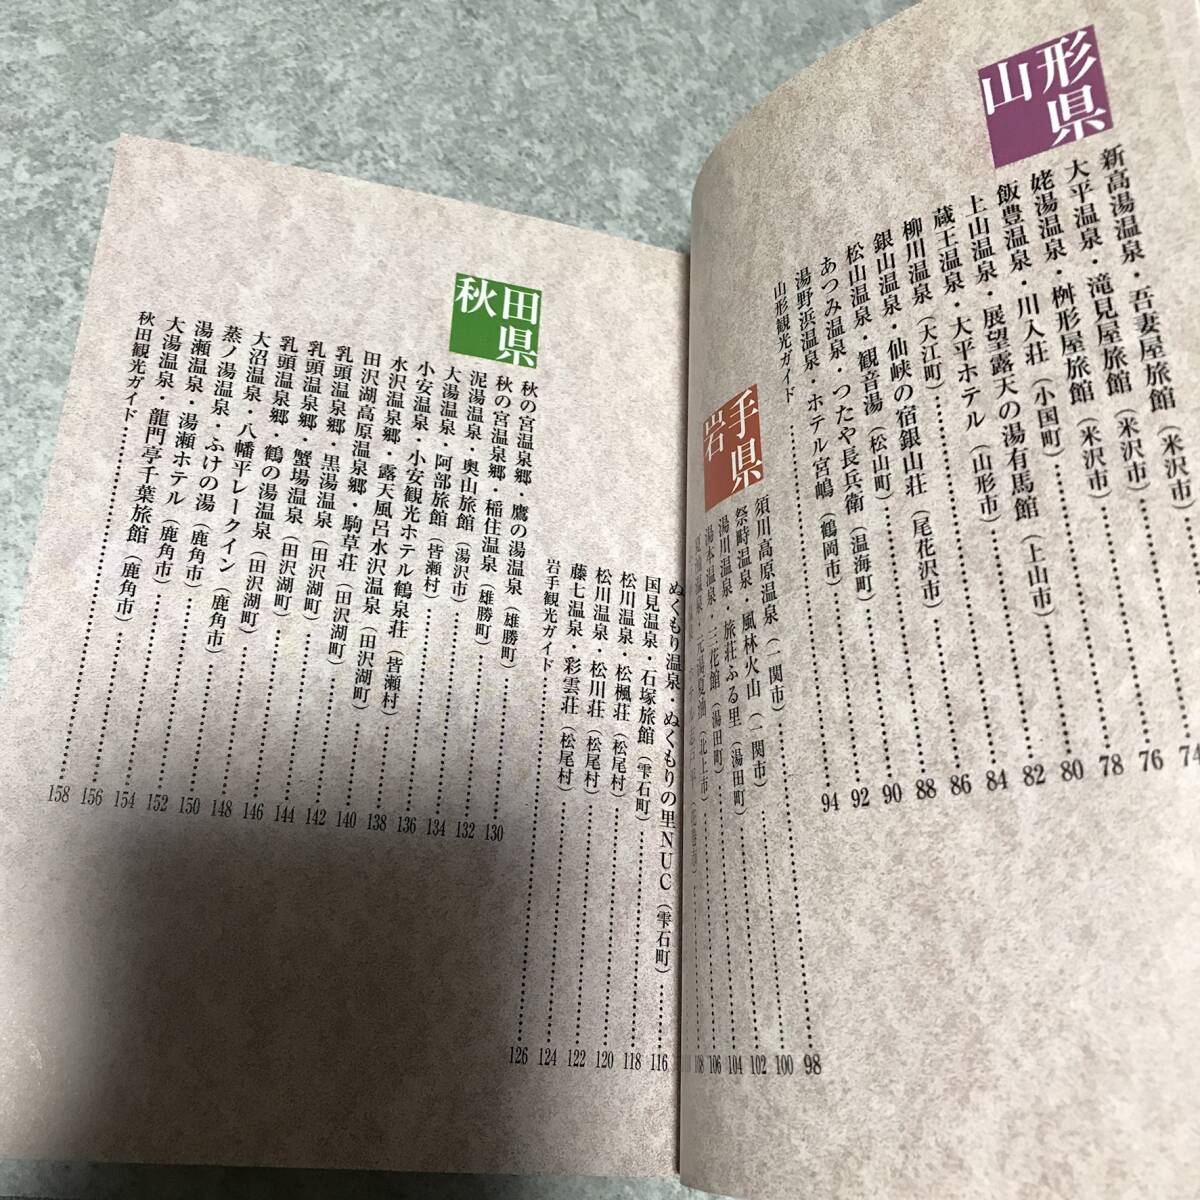 山形県
新高湯温泉・吾妻屋旅館(米沢市)……74
大平温泉・滝見屋旅館(米沢市)……76
姥湯温泉・桝形屋旅館(米沢市)……78
飯豊温泉・川入荘(小国町)……80
上山温泉・展望露天の湯有馬館(上山市)……82
蔵王温泉・大平ホテル(山形市)……84
柳川温泉(大江町)……86
銀山温泉・仙峡の宿銀山荘(尾花沢市)……88
松山温泉・観音湯(松山町)……90
あつみ温泉・つたや長兵衛(温海町)……92
湯野浜温泉・ホテル宮嶋(鶴岡市)……94
山形観光ガイド……98
岩手県
須川高原温泉(一関市)……100
祭畤温泉・風林火山(一関市)……102
湯川温泉・旅荘ふる里(湯田町)……104
湯本温泉・三花館(湯田町)……106
夏油温泉・元湯夏油(北上市)……108
ぬくもり温泉・ぬくもりの里NUC(雫石町)……116
国見温泉・石塚旅館(雫石町)……118
松川温泉・松楓荘(松尾村)……120
松川温泉・松川荘(松尾村)……122
藤七温泉・彩雲荘(松尾村)……124
岩手観光ガイド……126
秋田県
秋の宮温泉郷・鷹の湯温泉(雄勝町)……130
秋の宮温泉郷・稲住温泉(雄勝町)……132
泥湯温泉・奥山旅館(湯沢市)……134
大湯温泉・阿部旅館(皆瀬村)……136
小安温泉・小安観光ホテル鶴泉荘(皆瀬村)……138
水沢温泉郷・露天風呂水沢温泉(田沢湖町)……140
田沢湖高原温泉郷・駒草荘(田沢湖町)……142
乳頭温泉郷・黒湯温泉(田沢湖町)……144
乳頭温泉郷・蟹場温泉(田沢湖町)……146
乳頭温泉郷・鶴の湯温泉(田沢湖町)……148
大沼温泉・八幡平レークイン(鹿角市)……150
蒸ノ湯温泉・ふけの湯(鹿角市)……152
湯瀬温泉・湯瀬ホテル(鹿角市)……154
大湯温泉・龍門亭千葉旅館(鹿角市)……156
秋田観光ガイド……158